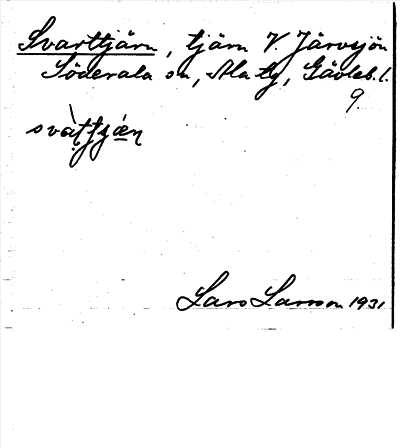 Svarttjärn, tjärn V. Järvsjön
Söderala sn, Ala tg, Gävleb. l.
9.
svàttjǽn
Lars Larsson 1931